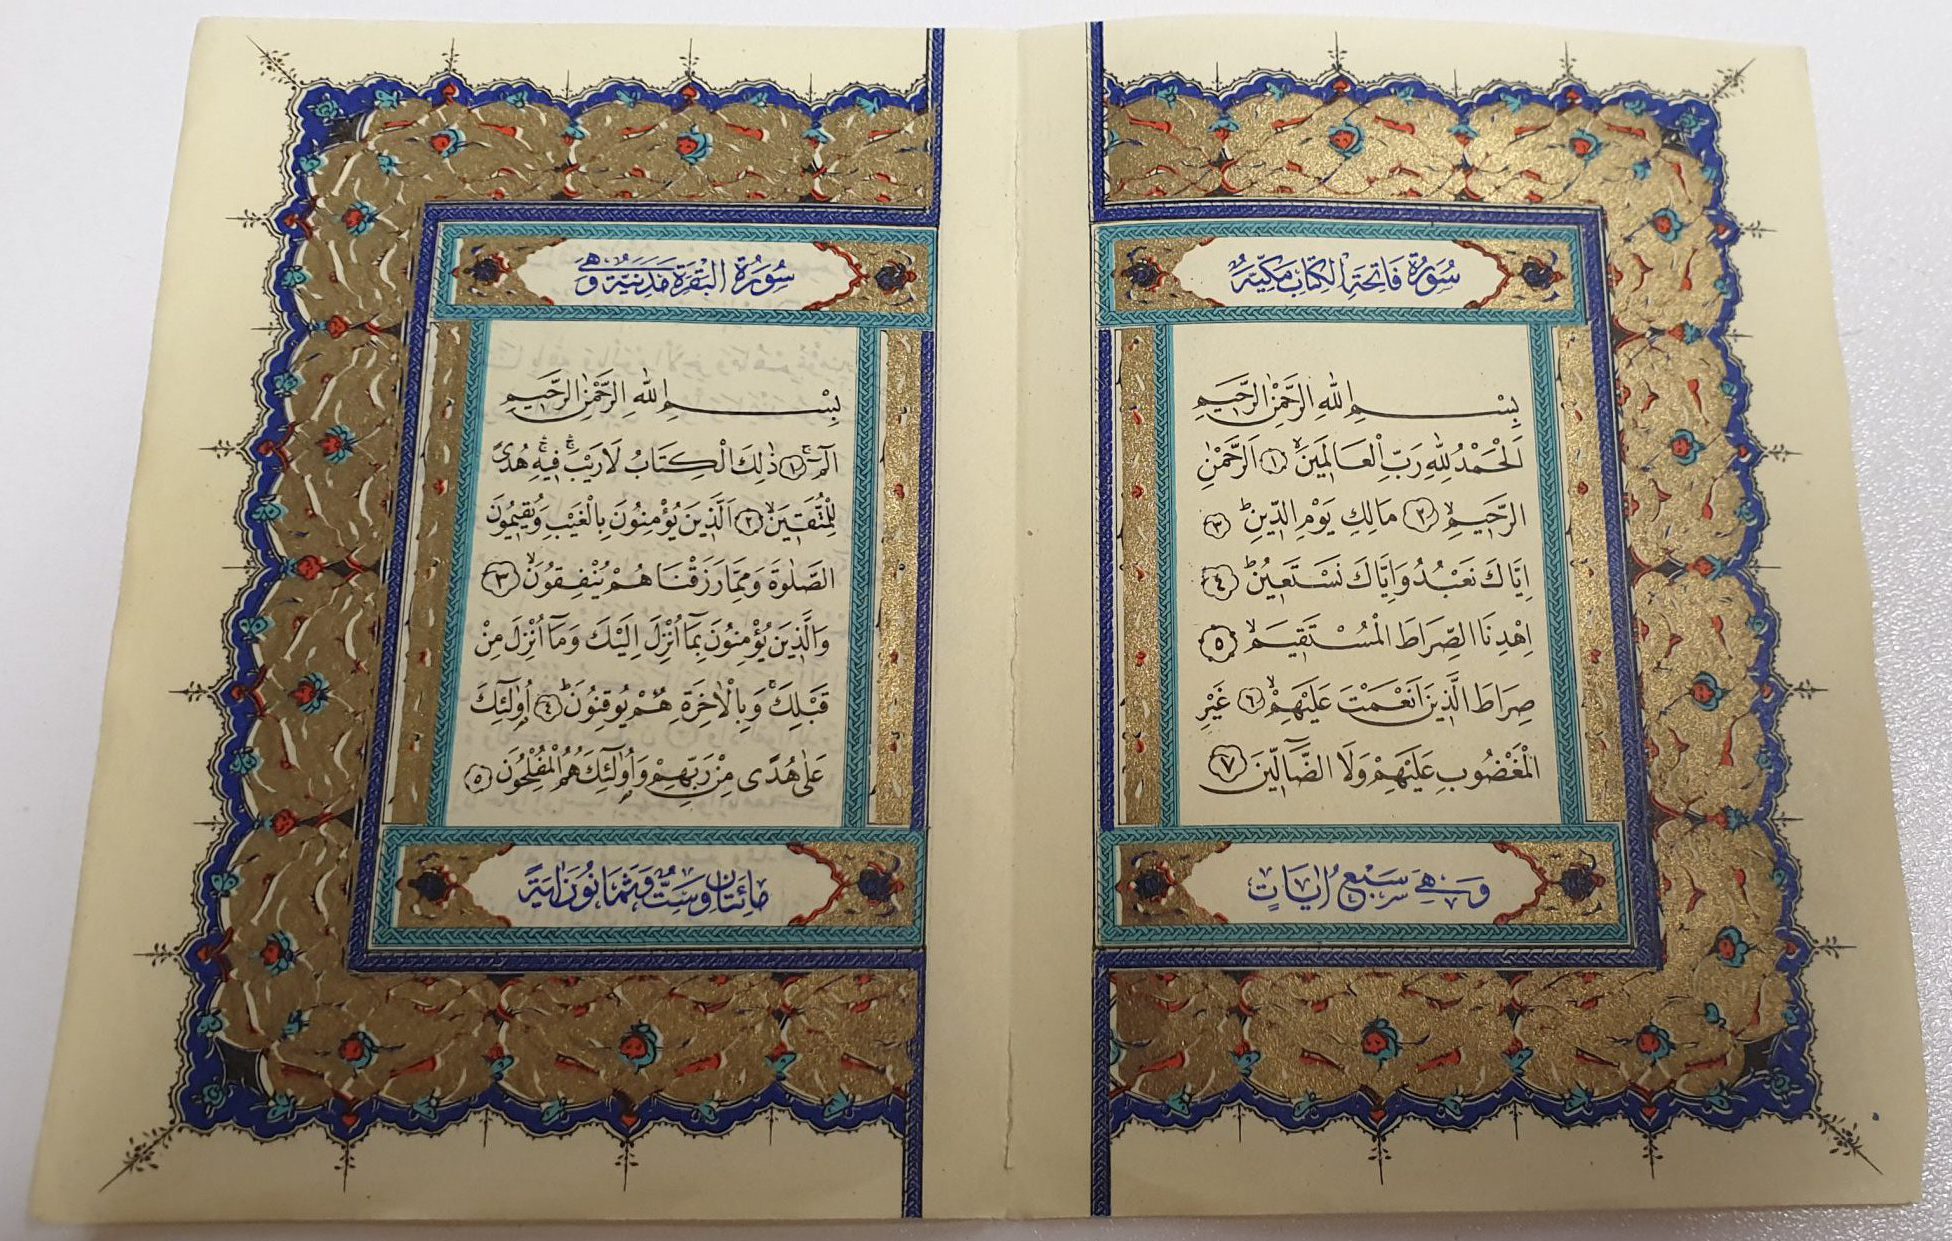 سُورَةُ فَاتِحَةِ الْكِتَابِ مَكِّيَّةٌ
بِسْمِ اللّٰهِ الرَّحْمٰنِ الرَّحِيمِ
اَلْحَمْدُ لِلّٰهِ رَبِّ الْعَالَمِينَۙ ﴿١﴾ اَلرَّحْمٰنِ
الرَّحِيمِۙ ﴿٢﴾ مَالِكِ يَوْمِ الدِّينِۜ ﴿٣﴾
اِيَّاكَ نَعْبُدُ وَاِيَّاكَ نَسْتَعِينُۜ ﴿٤﴾
اِهْدِنَا الصِّرَاطَ الْمُسْتَقِيمَۙ ﴿٥﴾
صِرَاطَ الَّذِينَ اَنْعَمْتَ عَلَيْهِمْۙ ﴿٦﴾ غَيْرِ
الْمَغْضُوبِ عَلَيْهِمْ وَلَا الضَّٓالِّينَ ﴿٧﴾
وَهِيَ سَبْعُ اٰيَاتٍ
سُورَةُ الْبَقَرَةِ مَدَنِيَّةٌ وَهِيَ
بِسْمِ اللّٰهِ الرَّحْمٰنِ الرَّحِيمِ
الٓمٓۚ ﴿١﴾ ذٰلِكَ الْكِتَابُ لَا رَيْبَۚۛ فِيهِۚۛ هُدًى
لِلْمُتَّقِينَۙ ﴿٢﴾ اَلَّذِينَ يُؤْمِنُونَ بِالْغَيْبِ وَيُقِيمُونَ
الصَّلٰوةَ وَمِمَّا رَزَقْنَاهُمْ يُنْفِقُونَۙ ﴿٣﴾
وَالَّذِينَ يُؤْمِنُونَ بِمَٓا اُنْزِلَ اِلَيْكَ وَمَٓا اُنْزِلَ مِنْ
قَبْلِكَۚ وَبِالْاٰخِرَةِ هُمْ يُوقِنُونَۜ ﴿٤﴾ اُو۬لٰٓئِكَ
عَلٰى هُدًى مِنْ رَبِّهِمْ وَاُو۬لٰٓئِكَ هُمُ الْمُفْلِحُونَ ﴿٥﴾
مِائَتَانِ وَسِتٌّ وَثَمَانُونَ اٰيَةً